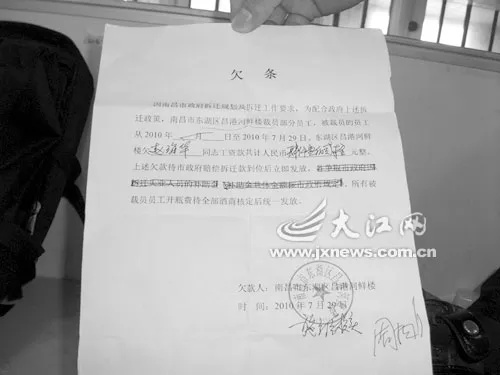 欠 条
因南昌市政府拆迁规划及拆迁工作要求，为配合政府上述拆
迁政策，南昌市东湖区昌港河鲜楼裁员部分员工，被裁员的员工
从 2010 年 月 日至 2010 年 7 月 29 日，东湖区昌港河鲜
楼欠 同志工资款共计人民币 元整。
上述欠款待市政府赔偿拆迁款到位后立即发放。
所有被
裁员员工开瓶费待全部酒商核定后统一发放。
欠款人：南昌市东湖区昌港河鲜楼
时 间：2010 年 7 月 29 日
大江网
www.jxnews.com.cn